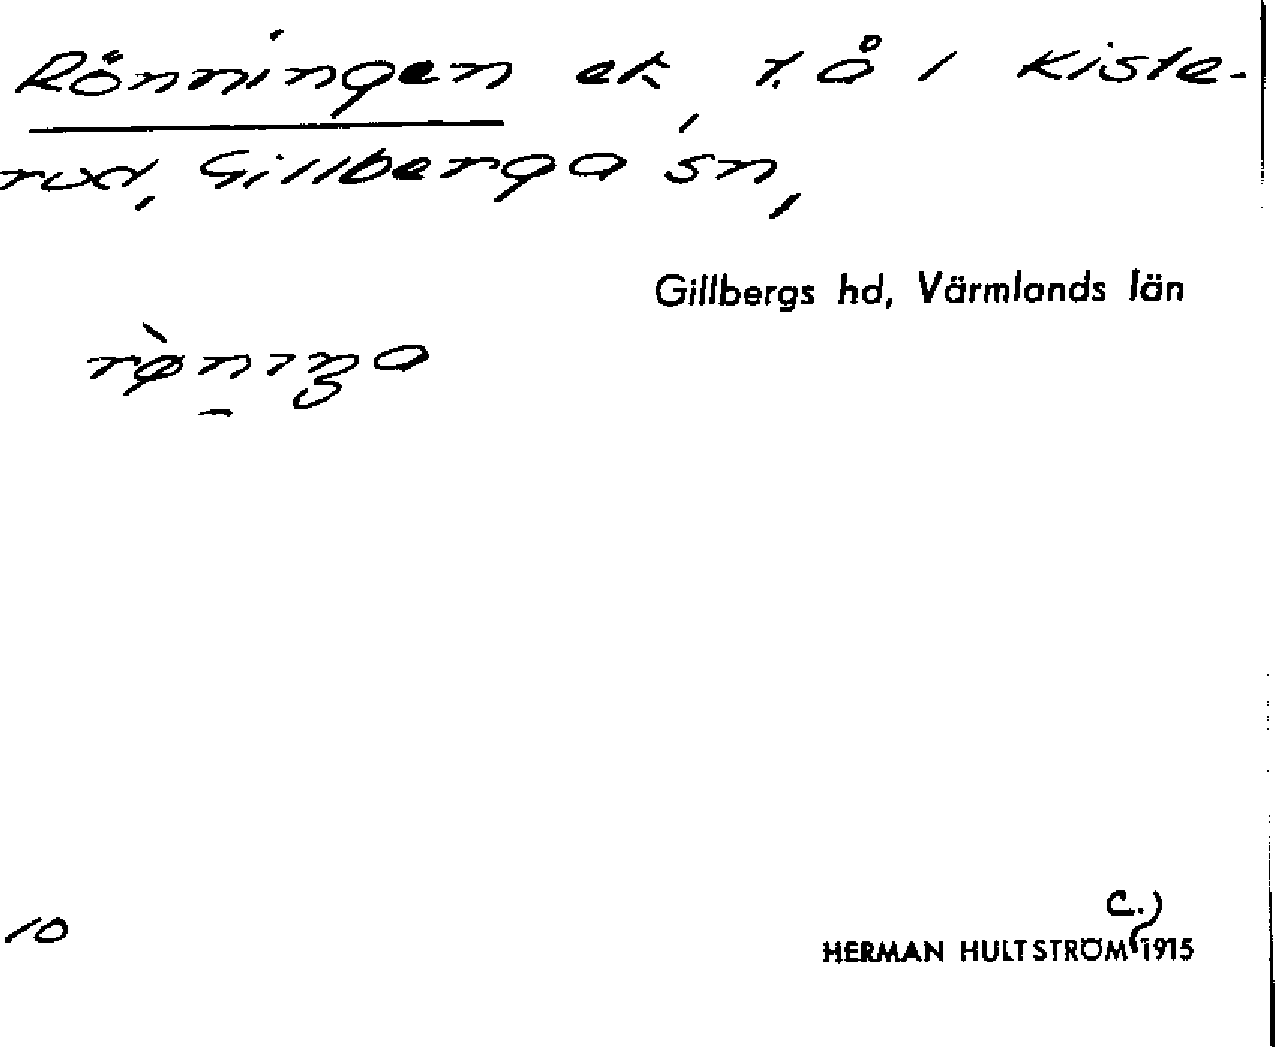 Rönningen ek, t. å i Kiste-
rud, Gillberga sn,
Gillbergs hd, Värmlands län
10
C.)
HERMAN HULTSTRÖM 1915